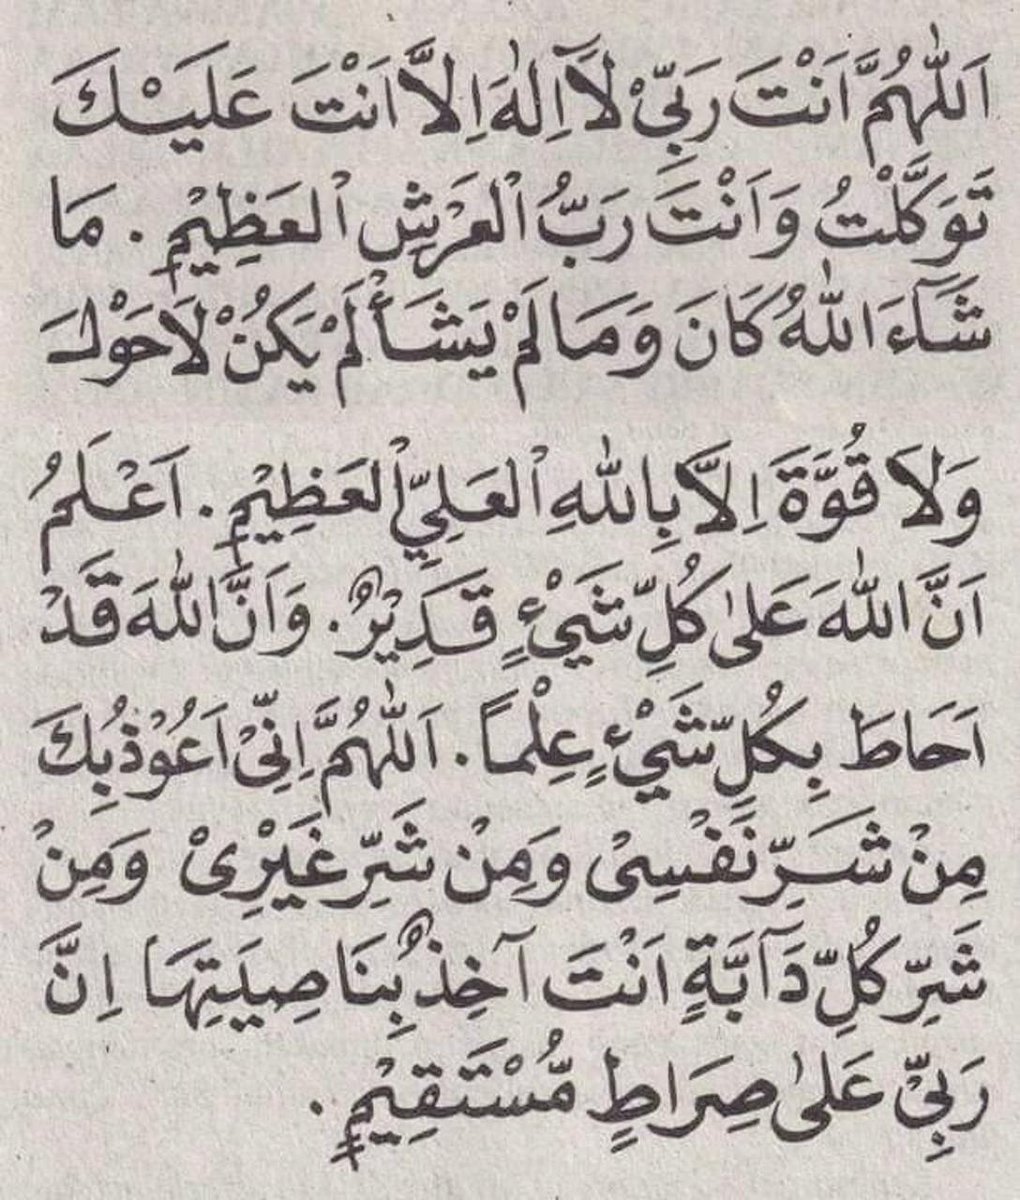 اَللّٰهُمَّ اَنْتَ رَبِّيْ لَآ اِلٰهَ اِلَّا اَنْتَ عَلَيْكَ
تَوَكَّلْتُ وَاَنْتَ رَبُّ الْعَرْشِ الْعَظِيْمِ. مَا
شَآءَ اللّٰهُ كَانَ وَمَا لَمْ يَشَأْ لَمْ يَكُنْ لَاحَوْلَ
وَلَا قُوَّةَ اِلَّا بِاللّٰهِ الْعَلِيِّ الْعَظِيْمِ. اَعْلَمُ
اَنَّ اللّٰهَ عَلٰى كُلِّ شَيْءٍ قَدِيْرٌ. وَاَنَّ اللّٰهَ قَدْ
اَحَاطَ بِكُلِّ شَيْءٍ عِلْمًا. اَللّٰهُمَّ اِنِّىْ اَعُوْذُبِكَ
مِنْ شَرِّ نَفْسِىْ وَمِنْ شَرِّ غَيْرِىْ وَمِنْ
شَرِّ كُلِّ دَآبَّةٍ اَنْتَ آخِذٌ بِنَاصِيَتِهَا اِنَّ
رَبِّيْ عَلٰى صِرَاطٍ مُّسْتَقِيْمٍ.